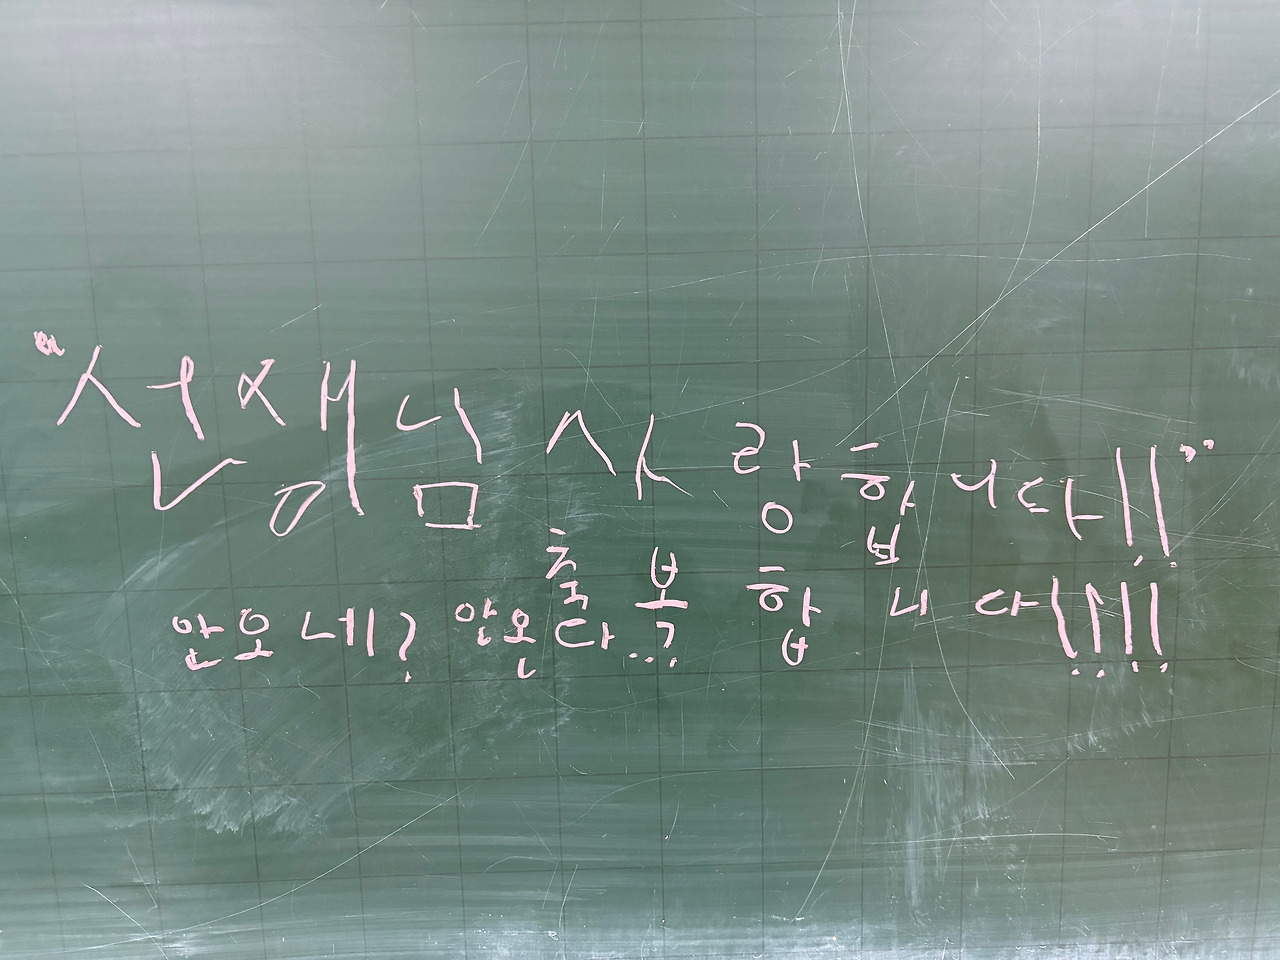 "선생님 사랑합니다!!"
축복합니다!!!!
안오네? 안온다...?